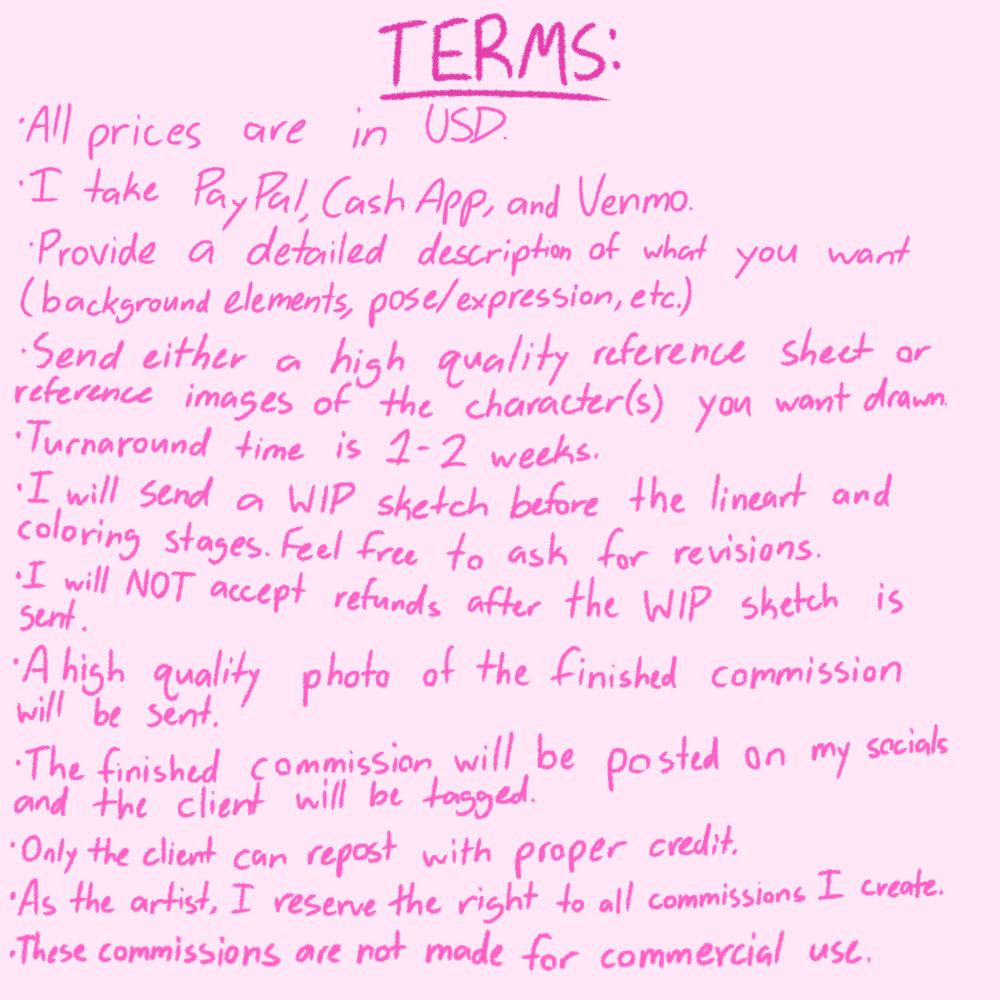 TERMS:
·All prices are in USD.
·I take PayPal, Cash App, and Venmo.
·Provide a detailed description of what you want
(background elements, pose/expression, etc.)
·Send either a high quality reference sheet or
reference images of the character(s) you want drawn.
·Turnaround time is 1-2 weeks.
·I will send a WIP sketch before the lineart and
coloring stages. Feel free to ask for revisions.
·I will NOT accept refunds after the WIP sketch is
sent.
·A high quality photo of the finished commission
will be sent.
·The finished commission will be posted on my socials
and the client will be tagged.
·Only the client can repost with proper credit.
·As the artist, I reserve the right to all commissions I create.
·These commissions are not made for commercial use.